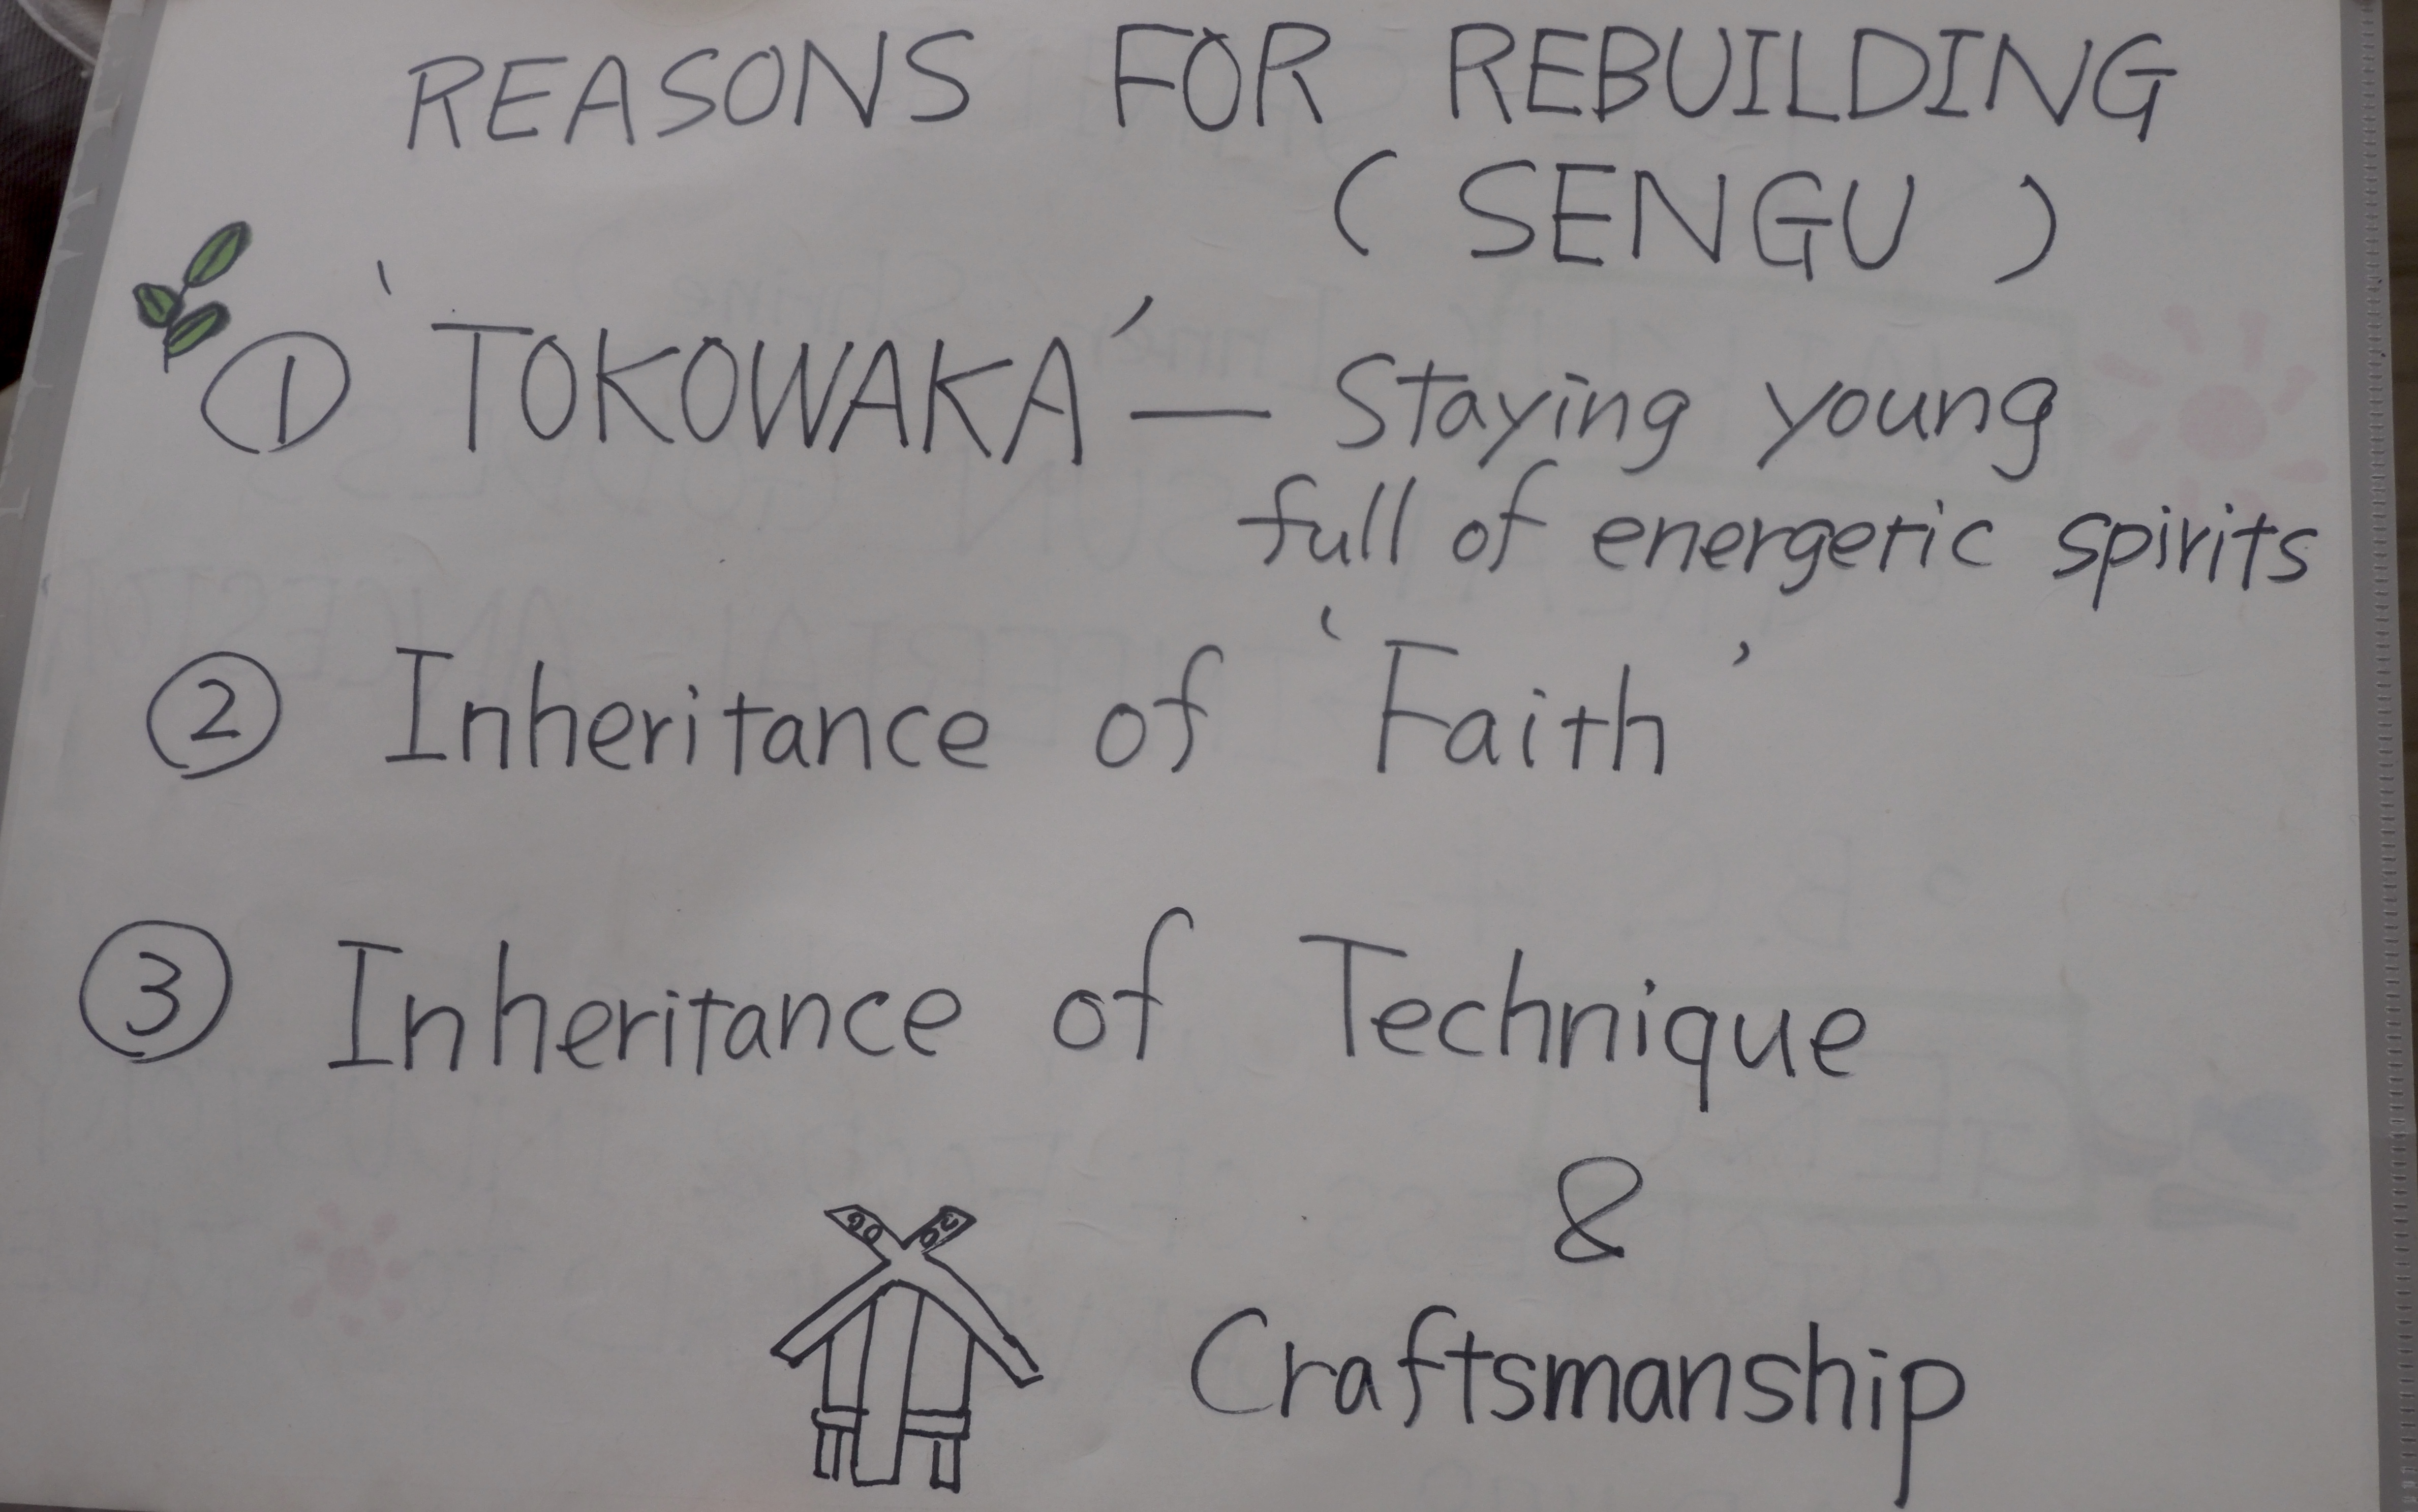 REASONS FOR REBUILDING
( SENGU )
① 'TOKOWAKA' — Staying young
full of energetic spirits
② Inheritance of 'Faith'
③ Inheritance of Technique
&
Craftsmanship